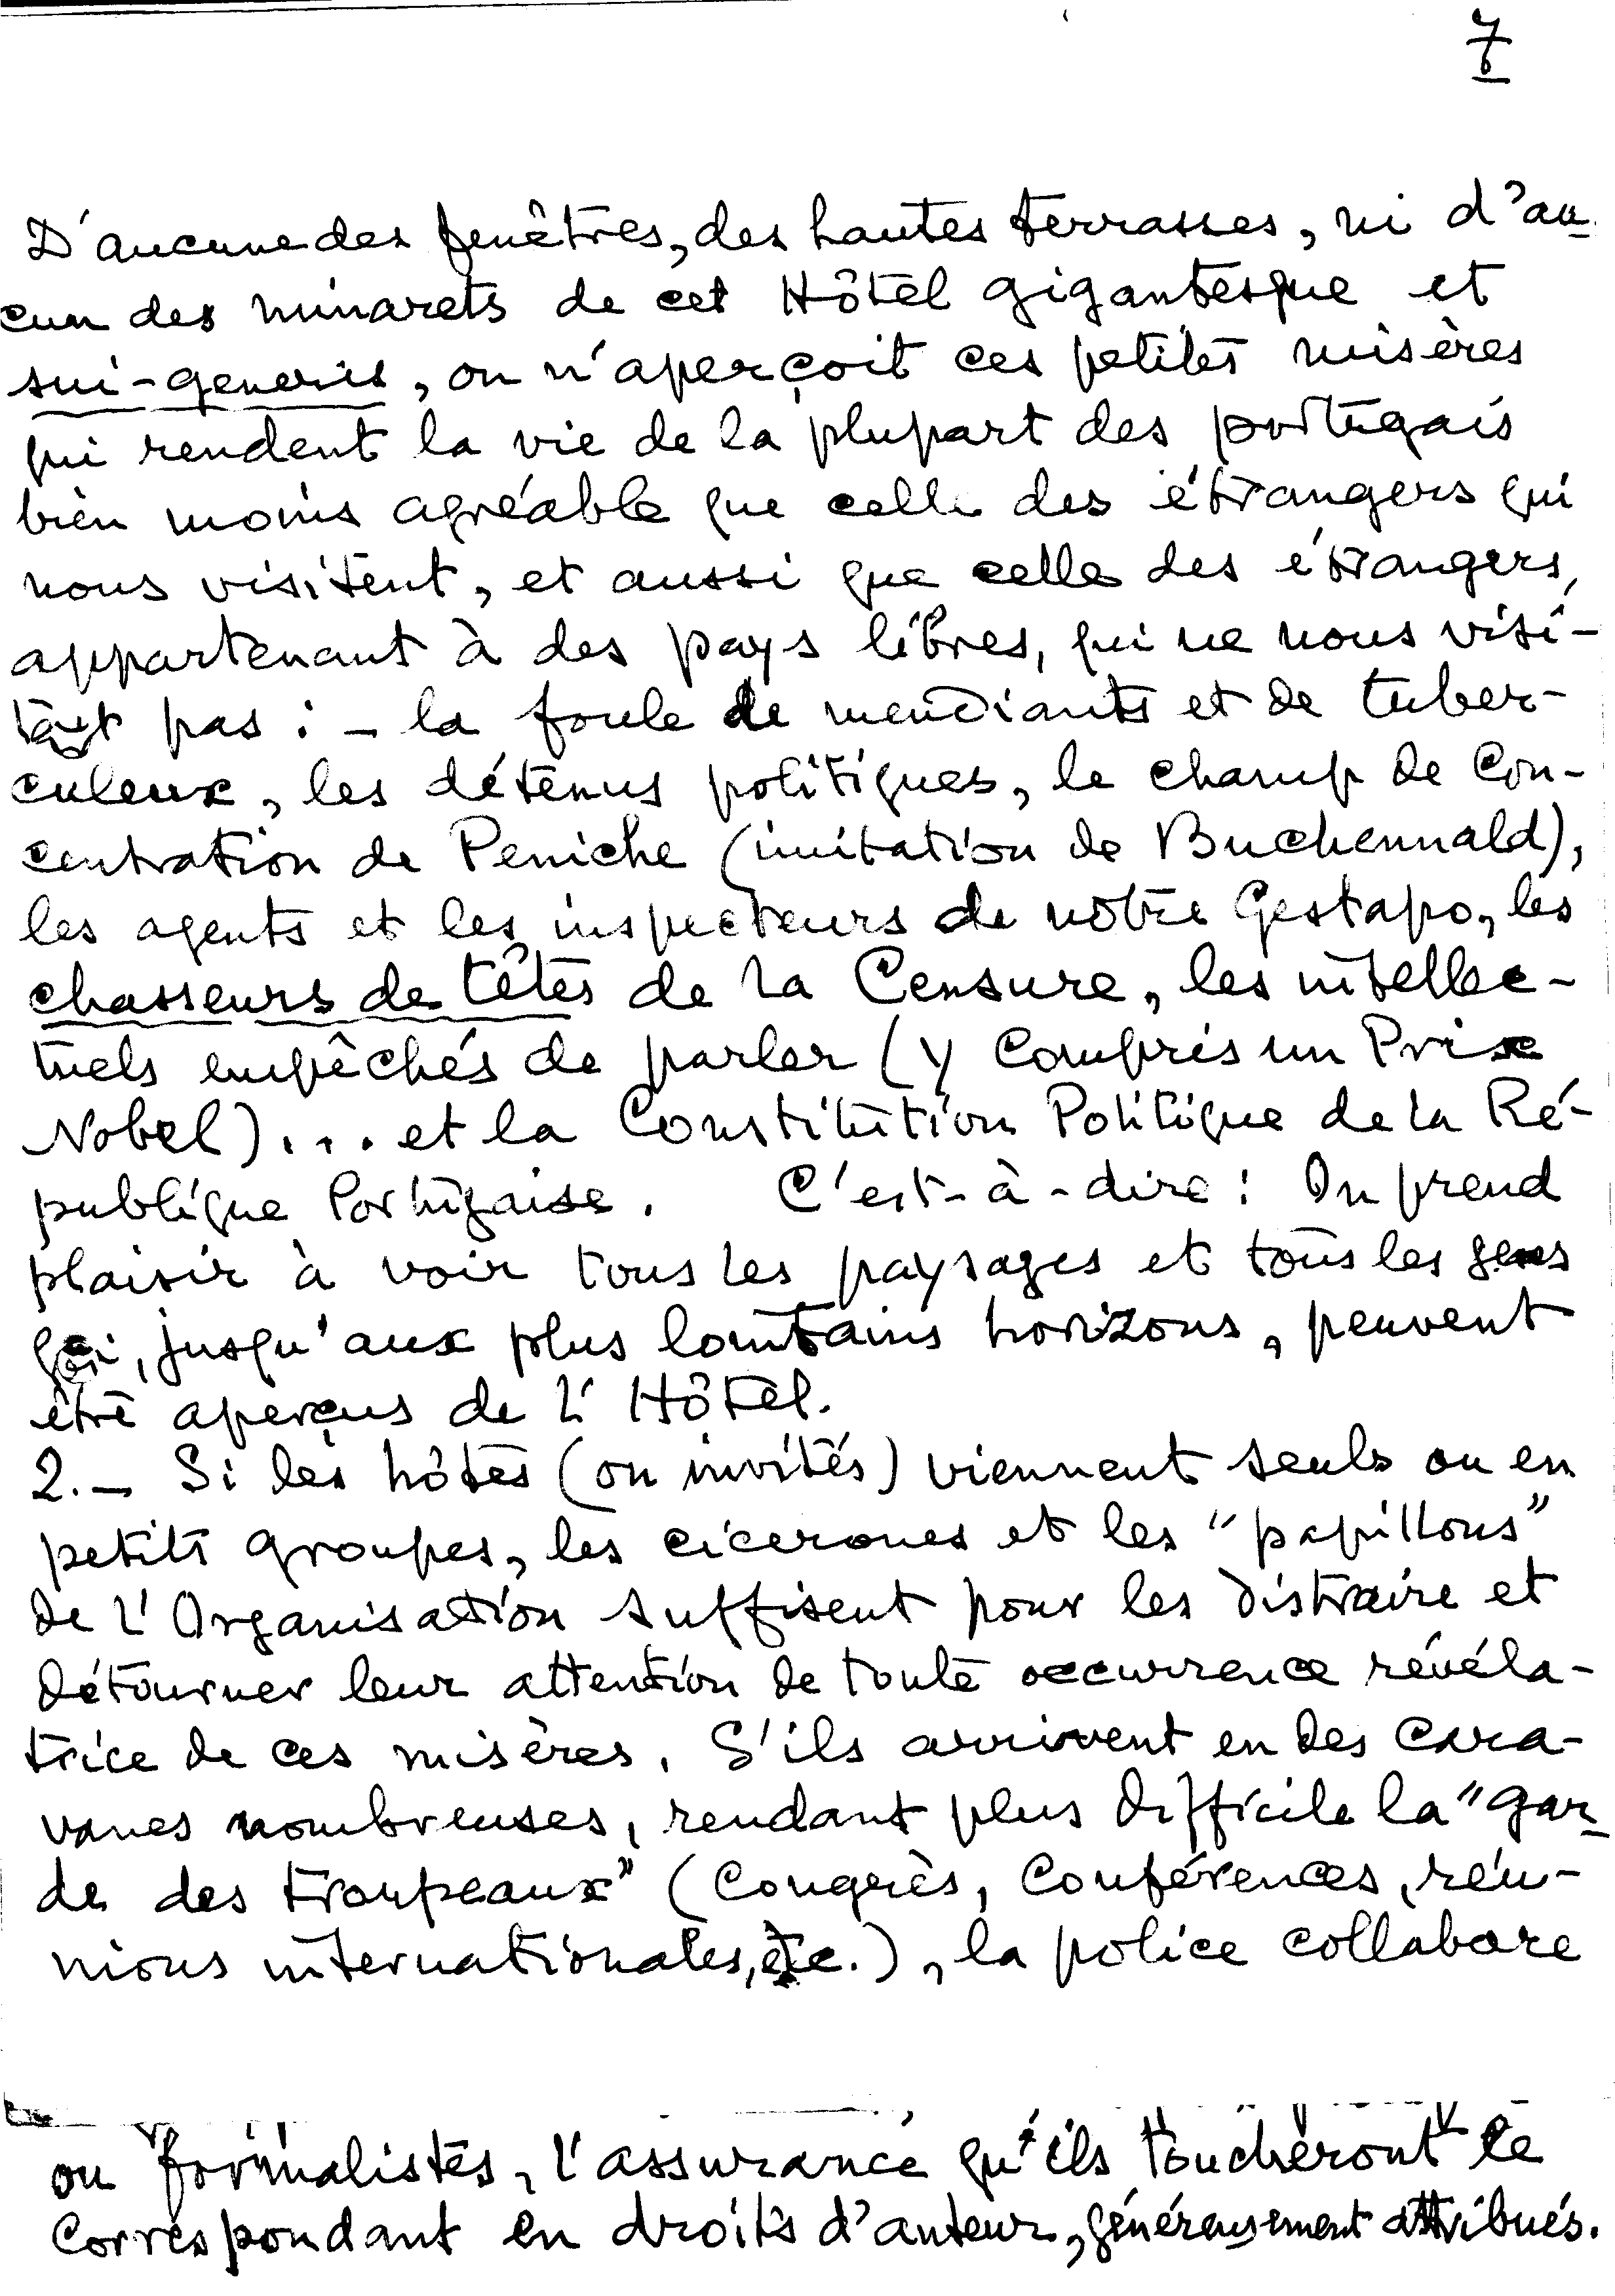 7
D'aucune des fenêtres, des hautes terrasses, ni d'au-
cun des minarets de cet Hôtel gigantesque et
sui-generis, on n'aperçoit ces petites misères
qui rendent la vie de la plupart des portugais
bien moins agréable que celle des étrangers qui
nous visitent, et aussi que celle des étrangers,
appartenant à des pays libres, qui ne nous visi-
tent pas : - la foule de mendiants et de tuber-
culeux, les détenus politiques, le champ de Con-
centration de Peniche (imitation de Buchennald),
les agents et les inspecteurs de notre Gestapo, les
chasseurs de têtes de la Censure, les intellec-
tuels empêchés de parler (y compris un Prix
Nobel)... et la Constitution Politique de la Ré-
publique Portugaise. C'est-à-dire : On prend
plaisir à voir tous les paysages et tous les gens
qui, jusqu'aux plus lointains horizons, peuvent
être aperçus de l'Hôtel.
2.- Si les hôtes (ou invités) viennent seuls ou en
petits groupes, les cicerones et les "papillons"
de l'Organisation suffisent pour les distraire et
détourner leur attention de toute occurrence révéla-
trice de ces misères. S'ils arrivent en des cara-
vanes nombreuses, rendant plus difficile la "gar-
de des troupeaux" (Congrès, Conférences, réu-
nions internationales, etc.), la police collabore
ou formalistes, l'assurance qu'ils toucheront le
correspondant en droits d'auteur, généreusement attribués.